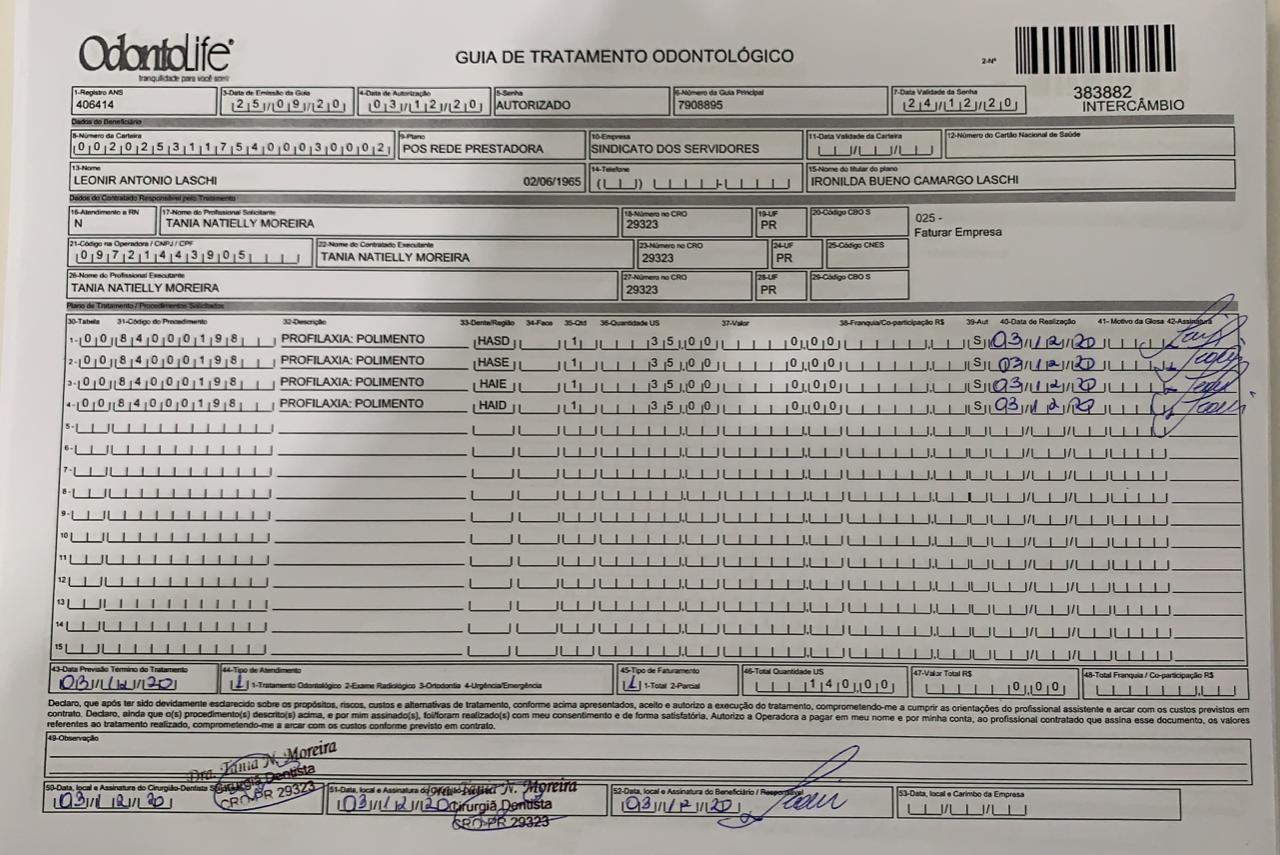 OdontoLife®
tranquilidade para você sorrir
GUIA DE TRATAMENTO ODONTOLÓGICO
2-Nº
383882
INTERCÂMBIO
1-Registro ANS 3-Data de Emissão da Guia 4-Data de Autorização 5-Senha 6-Número da Guia Principal 7-Data Validade da Senha
406414 25/09/20 03/12/20 AUTORIZADO 7908895 24/12/20
Dados do Beneficiário
8-Número da Carteira 9-Plano 10-Empresa 11-Data Validade da Carteira 12-Número do Cartão Nacional de Saúde
00202531175400030002 POS REDE PRESTADORA SINDICATO DOS SERVIDORES
13-Nome 14-Telefone 15-Nome do titular do plano
LEONIR ANTONIO LASCHI 02/06/1965 IRONILDA BUENO CAMARGO LASCHI
Dados do Contratado Responsável pelo Tratamento
16-Atendimento a RN 17-Nome do Profissional Solicitante 18-Número no CRO 19-UF 20-Código CBO S
N TANIA NATIELLY MOREIRA 29323 PR
025 -
Faturar Empresa
21-Código na Operadora / CNPJ / CPF 22-Nome do Contratado Executante 23-Número no CRO 24-UF 25-Código CNES
09721443905 TANIA NATIELLY MOREIRA 29323 PR
26-Nome do Profissional Executante 27-Número no CRO 28-UF 29-Código CBO S
TANIA NATIELLY MOREIRA 29323 PR
Plano de Tratamento / Procedimentos Solicitados
30-Tabela 31-Código do Procedimento 32-Descrição 33-Dente/Região 34-Face 35-Qtd 36-Quantidade US 37-Valor 38-Franquia/Co-participação R$ 39-Aut 40-Data de Realização 41- Motivo da Glosa 42-Assinatura
1- 00 84000198 PROFILAXIA: POLIMENTO HASD 1 35,00 0,00 S 03/12/20
2- 00 84000198 PROFILAXIA: POLIMENTO HASE 1 35,00 0,00 S 03/12/20
3- 00 84000198 PROFILAXIA: POLIMENTO HAIE 1 35,00 0,00 S 03/12/20
4- 00 84000198 PROFILAXIA: POLIMENTO HAID 1 35,00 0,00 S 03/12/20
5-
6-
7-
8-
9-
10
11
12
13
14
15
43-Data Previsão Término do Tratamento 44-Tipo de Atendimento 45-Tipo de Faturamento 46-Total Quantidade US 47-Valor Total R$ 48-Total Franquia / Co-participação R$
03/12/20 1 1-Tratamento Odontológico 2-Exame Radiológico 3-Ortodontia 4-Urgência/Emergência 1 1-Total 2-Parcial 140,00 0,00
Declaro, que após ter sido devidamente esclarecido sobre os propósitos, riscos, custos e alternativas de tratamento, conforme acima apresentados, aceito e autorizo a execução do tratamento, comprometendo-me a cumprir as orientações do profissional assistente e arcar com os custos previstos em
contrato. Declaro, ainda que o(s) procedimento(s) descrito(s) acima, e por mim assinado(s), foi/foram realizado(s) com meu consentimento e de forma satisfatória. Autorizo a Operadora a pagar em meu nome e por minha conta, ao profissional contratado que assina esse documento, os valores
referentes ao tratamento realizado, comprometendo-me a arcar com os custos conforme previsto em contrato.
49-Observação
Dra. Tania N. Moreira
Cirurgiã Dentista
CRO-PR 29323
50-Data, local e Assinatura do Cirurgião-Dentista
03/12/20
51-Data, local e Assinatura do
03/12/20
Dra. Tania N. Moreira
Cirurgiã Dentista
CRO-PR 29323
52-Data, local e Assinatura do Beneficiário / Responsável
03/12/20
53-Data, local e Carimbo da Empresa